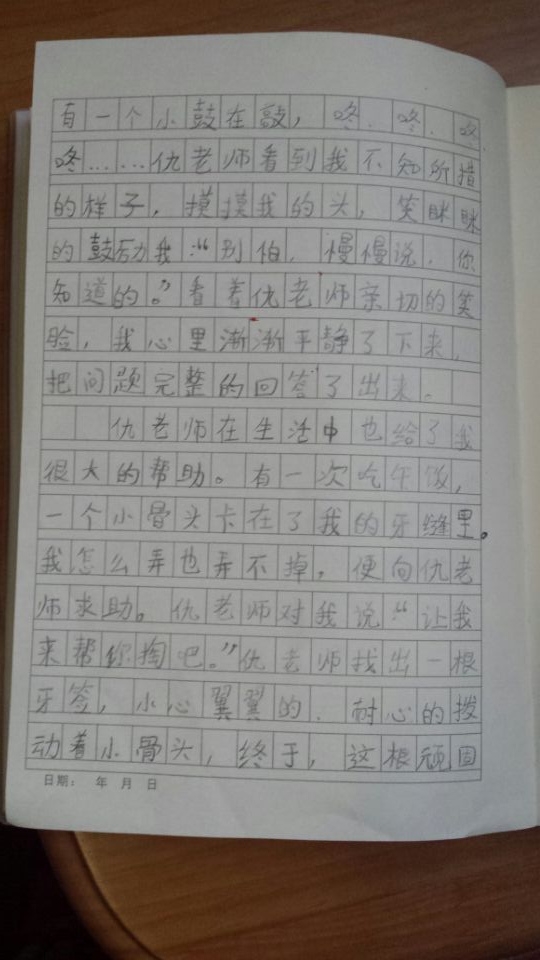 有一个小鼓在敲，咚、咚、咚
咚……仇老师看到我不知所措
的样子，摸摸我的头，笑眯眯
的鼓励我：“别怕，慢慢说，你
知道的。”看着仇老师亲切的笑
脸，我心里渐渐平静了下来，
把问题完整的回答了出来。
仇老师在生活中也给了我
很大的帮助。有一次吃午饭，
一个小骨头卡在了我的牙缝里。
我怎么弄也弄不掉，便向仇老
师求助。仇老师对我说：“让我
来帮你掏吧。”仇老师找出一根
牙签，小心翼翼的、耐心的拨
动着小骨头，终于，这根顽固
日期： 年 月 日